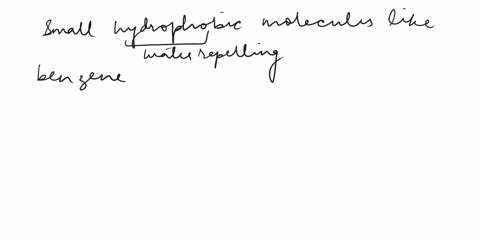 Small hydrophobic molecules like
water repelling
benzene